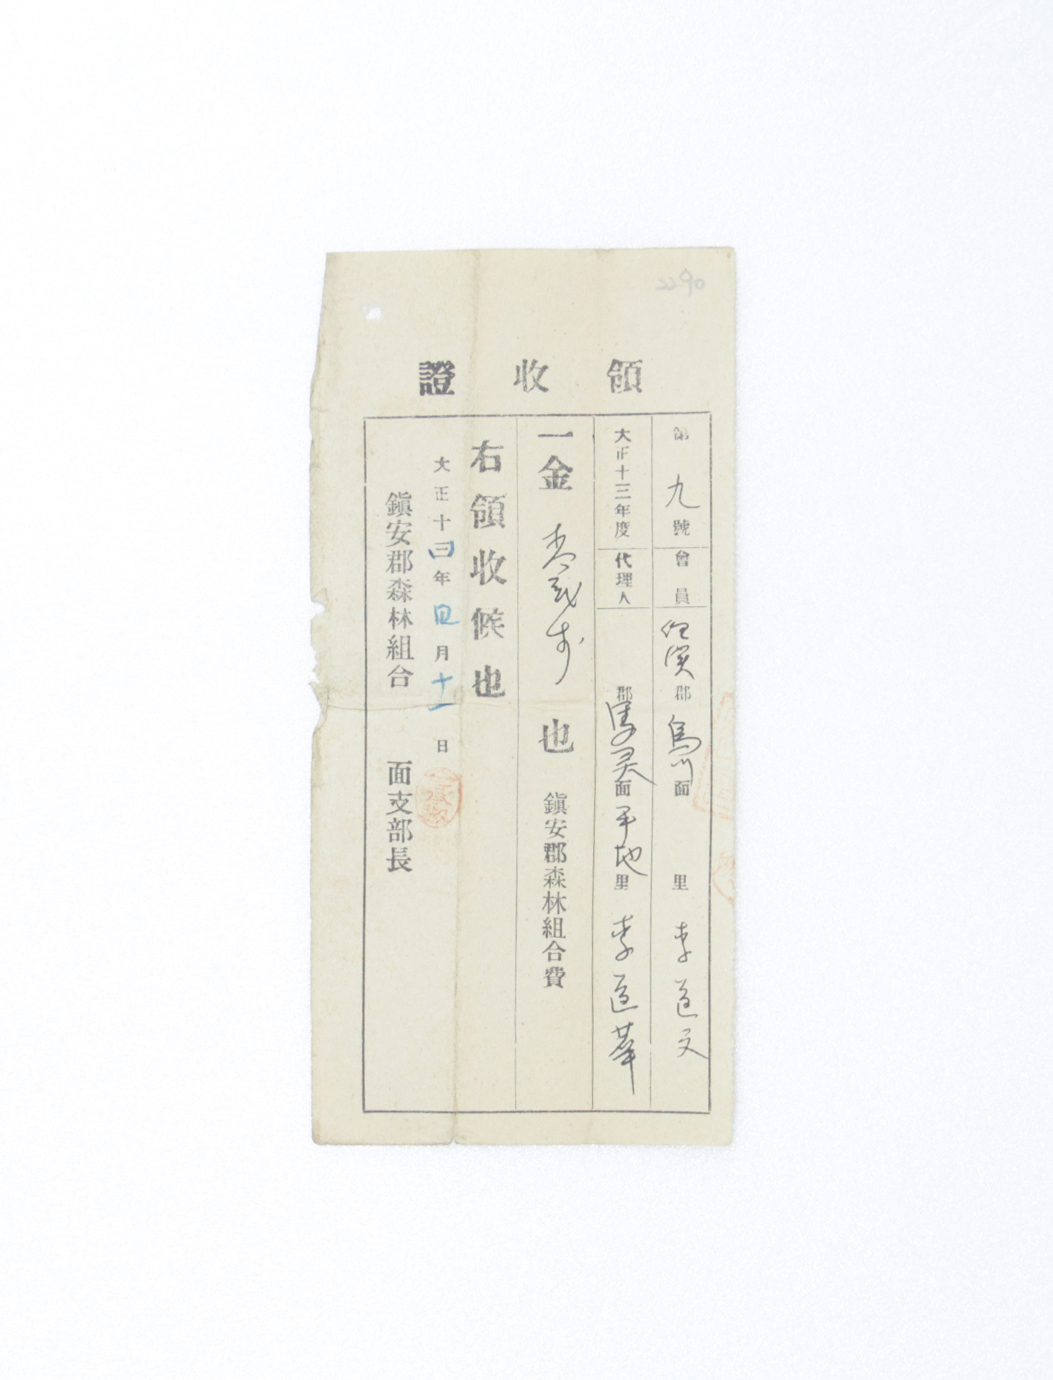 2290
領收證
第九號 會員 任実郡 烏川面 里 李道文
大正十三年度 代理人 郡 馬灵面 平地里 李道華
一金 弐戋 也 鎭安郡森林組合費
右領收候也
大正十四年四月十一日
鎭安郡森林組合 面支部長